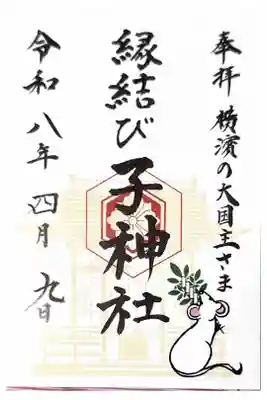 奉拝 横濱の大国主さま
縁結び 子神社
令和八年四月九日